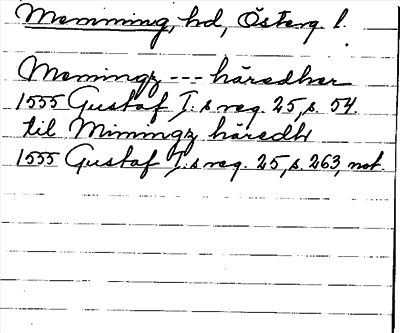 Memming, hd, Österg l.
Memingz --- häredher
1555 Gustaf I:s reg. 25, s. 54.
til Mimingz häredh
1555 Gustaf I:s reg. 25, s. 263, not.